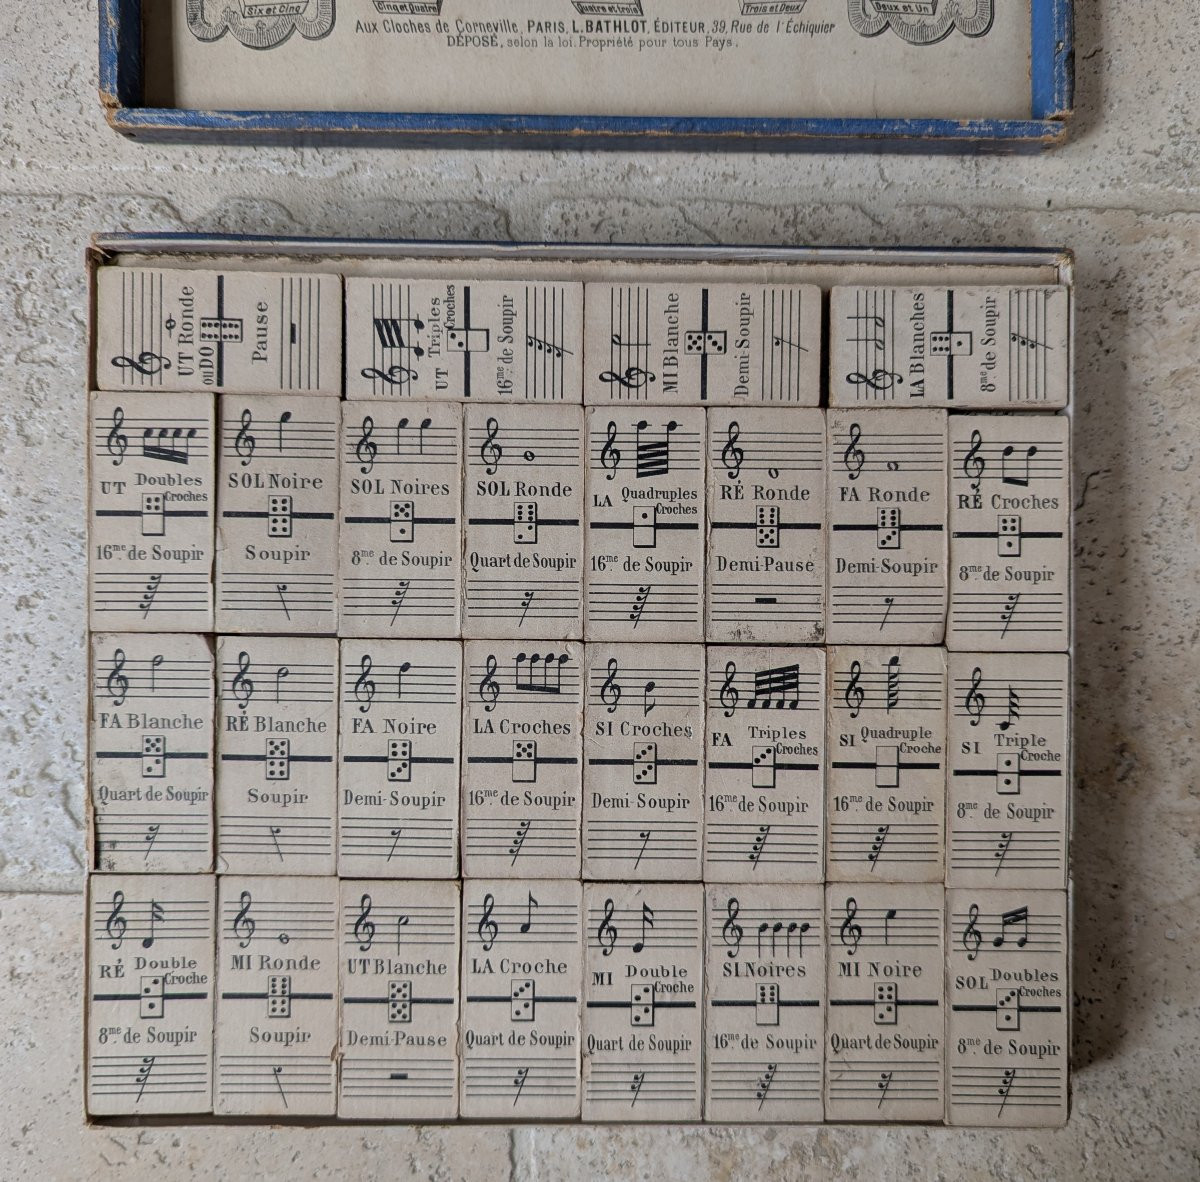 Six et Cinq
Cinq et Quatre
Quatre et trois
Trois et Deux
Deux et Un
Aux Cloches de Corneville, PARIS, L. BATHLOT, ÉDITEUR, 39, Rue de l'Échiquier
DÉPOSÉ, selon la loi. Propriété pour tous Pays.
UT Ronde
ou DO
Pause
UT Triples Croches
16me de Soupir
MI Blanche
Demi-Soupir
LA Blanches
8me de Soupir
UT Doubles Croches
16me de Soupir
SOL Noire
Soupir
SOL Noires
8me de Soupir
SOL Ronde
Quart de Soupir
LA Quadruples Croches
16me de Soupir
RÉ Ronde
Demi-Pause
FA Ronde
Demi-Soupir
RÉ Croches
8me de Soupir
FA Blanche
Quart de Soupir
RÉ Blanche
Soupir
FA Noire
Demi-Soupir
LA Croches
16me de Soupir
SI Croches
Demi-Soupir
FA Triples Croches
16me de Soupir
SI Quadruple Croche
16me de Soupir
SI Triple Croche
8me de Soupir
RÉ Double Croche
8me de Soupir
MI Ronde
Soupir
UT Blanche
Demi-Pause
LA Croche
Quart de Soupir
MI Double Croche
Quart de Soupir
SI Noires
16me de Soupir
MI Noire
Quart de Soupir
SOL Doubles Croches
8me de Soupir